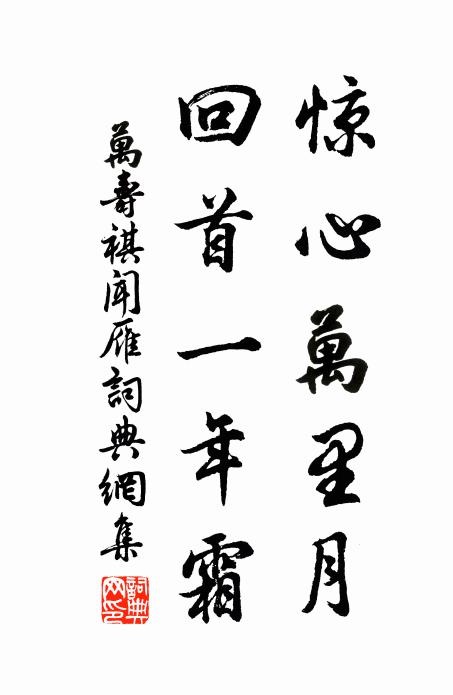 惊心萬里月
回首一年霜
萬壽祺闻雁詞典網集
詞典網印